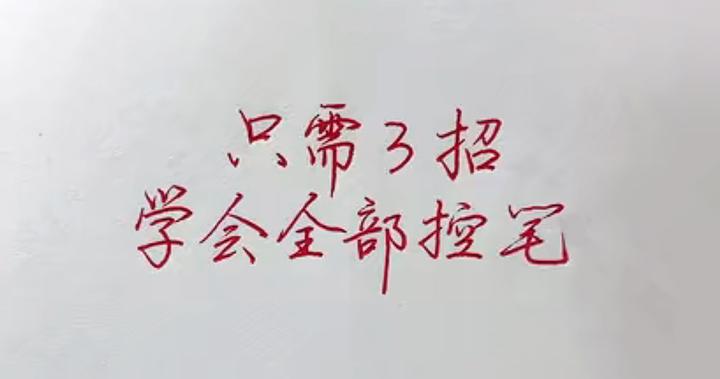 只需3招
学会全部控笔